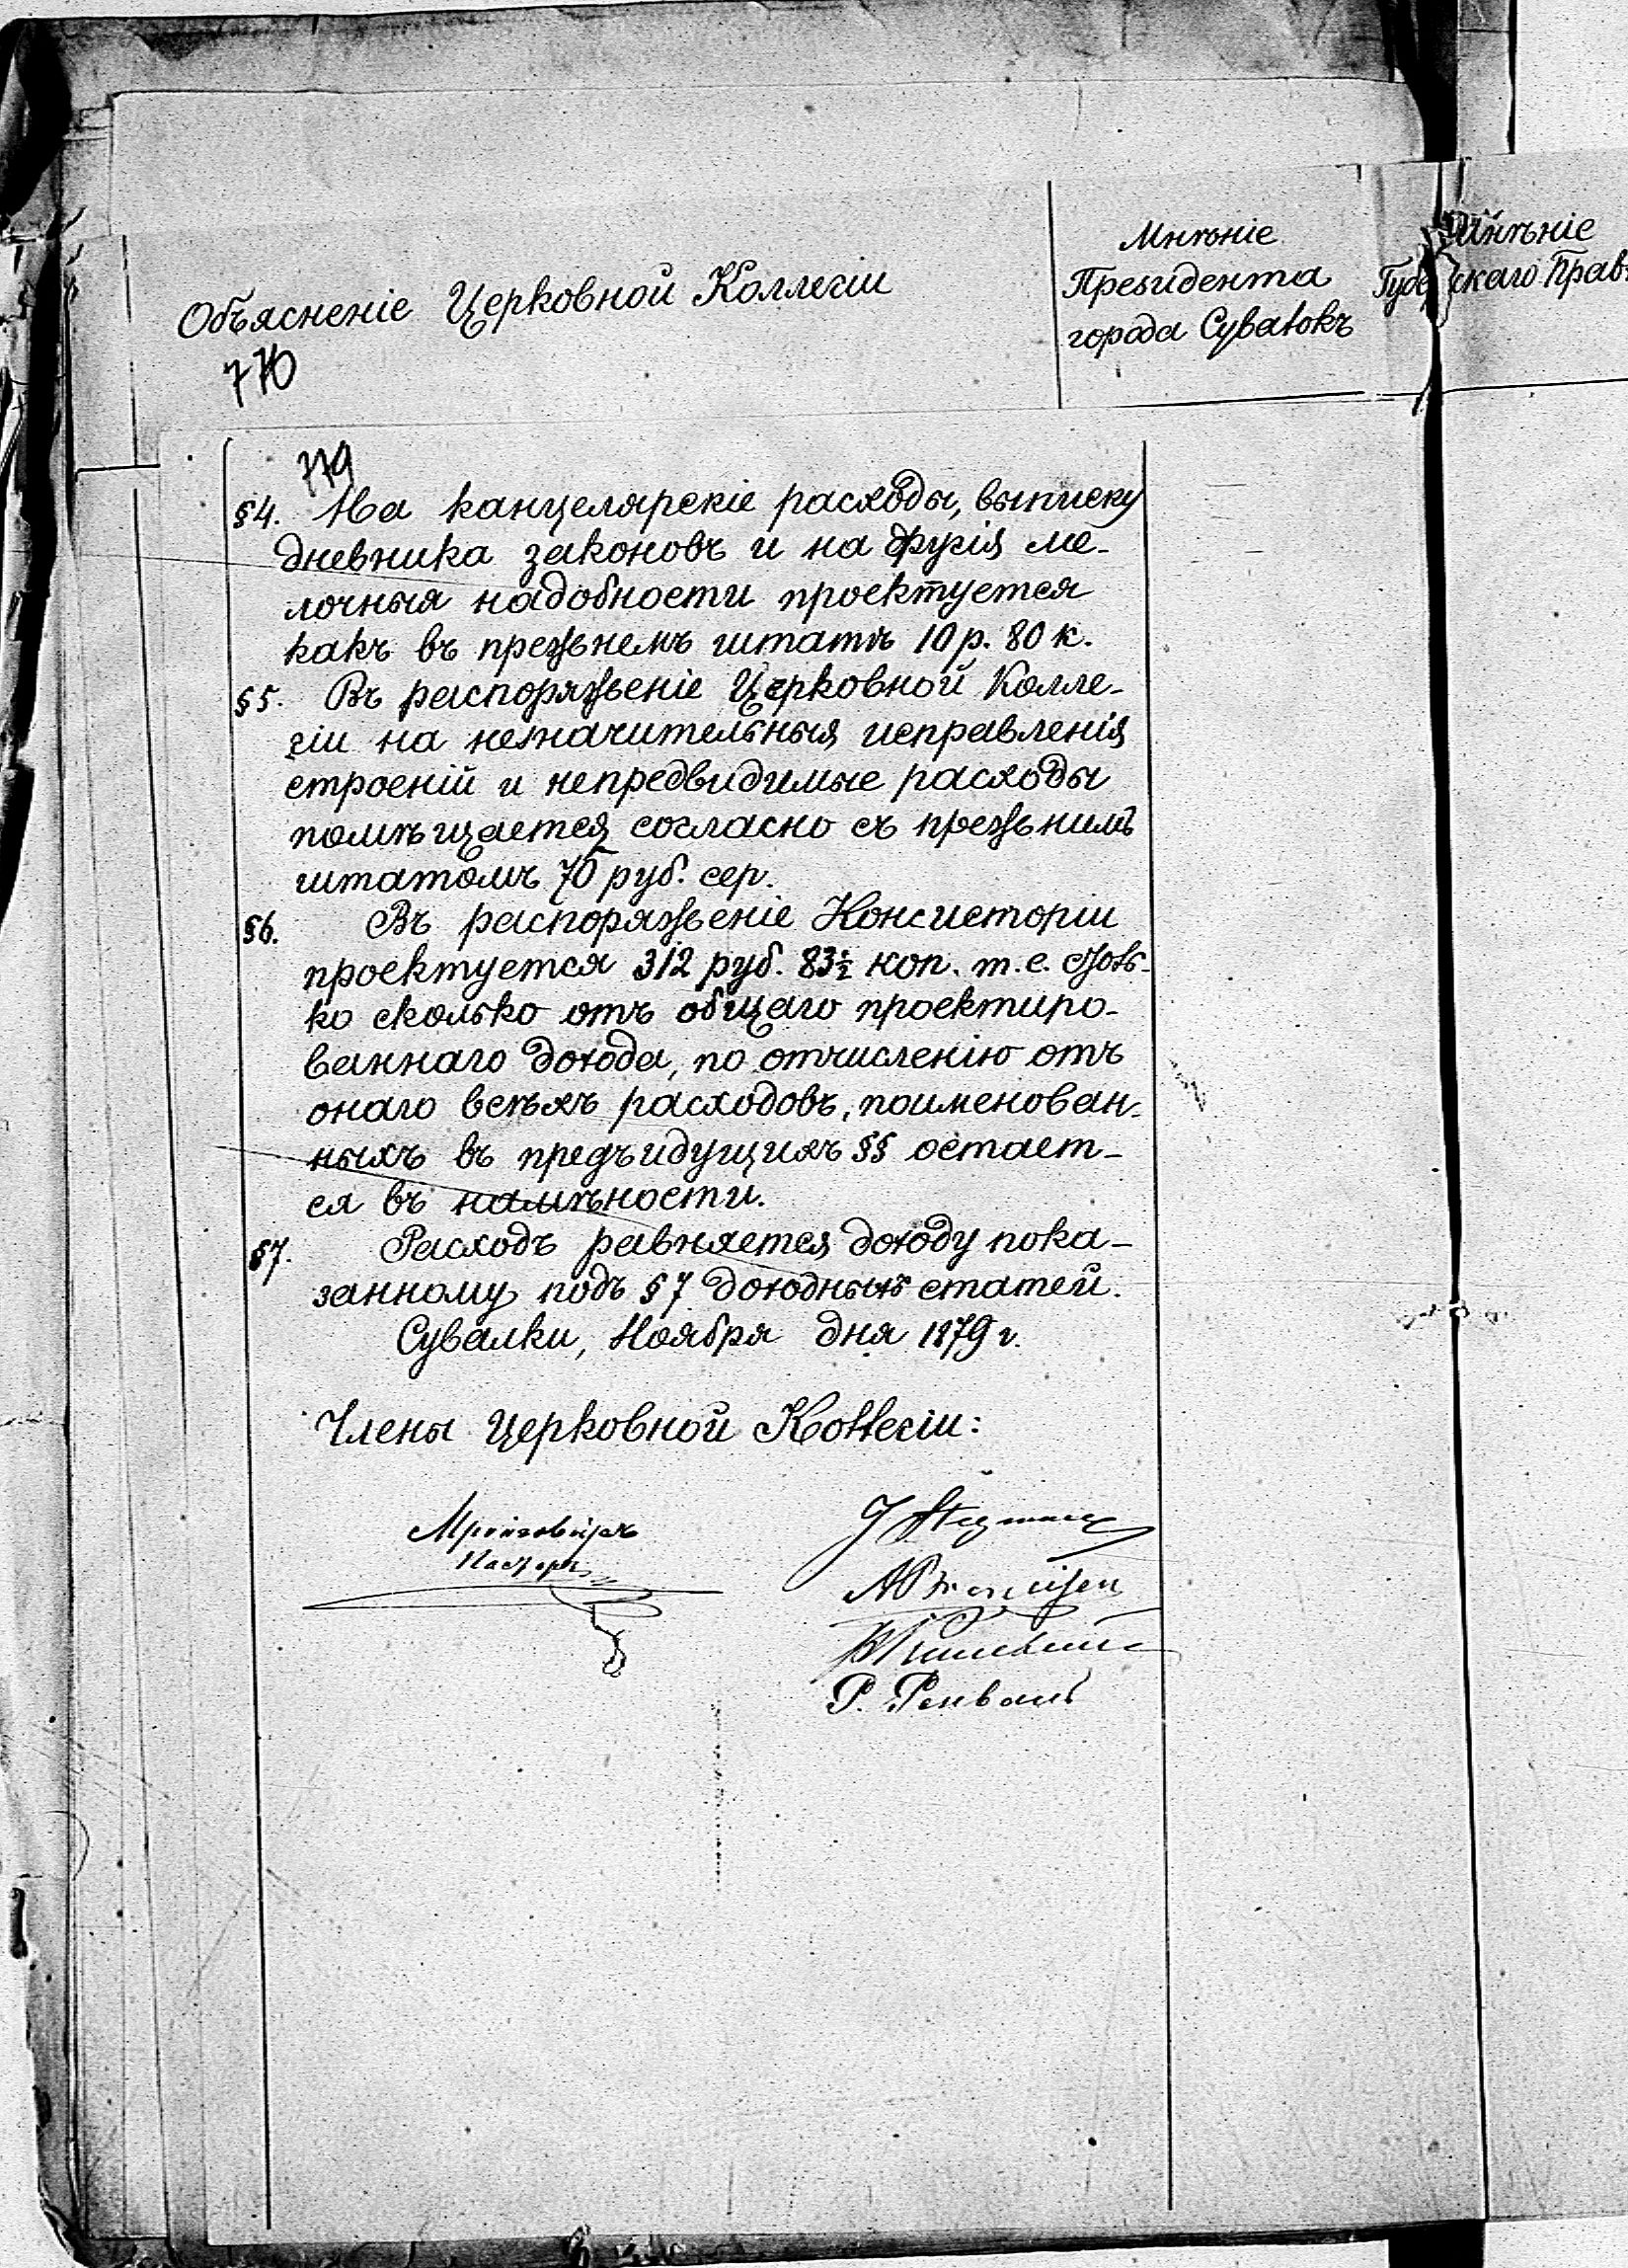 Объясненіе Церковной Коллегіи
Мнѣніе
Президента
города Сувалокъ
Мнѣніе
Губе скаго Прав
779
§4. На канцелярскіе расходы, выписку
дневника законовъ и на другія ме-
лочныя надобности проектуется
какъ въ прежнемъ штатѣ 10 р. 80 к.
§5. Въ распоряженіе Церковной Колле-
гіи на незначительныя исправленія
строеній и непредвидимые расходы
помѣщается согласно съ прежнимъ
штатомъ 75 руб. сер.
§6. Въ распоряженіе Консисторіи
проектуется 312 руб. 83½ коп. т.е. столь-
ко сколько отъ общаго проектиро-
ваннаго дохода, по отчисленію отъ
онаго всѣхъ расходовъ, поименован-
ныхъ въ предъидущихъ §§ остает-
ся въ наличности.
§7. Расходъ равняется доходу пока-
занному подъ §7 доходныхъ статей.
Сувалки, Ноября дня 1879 г.
Члены Церковной Коллегіи:
Пасторъ